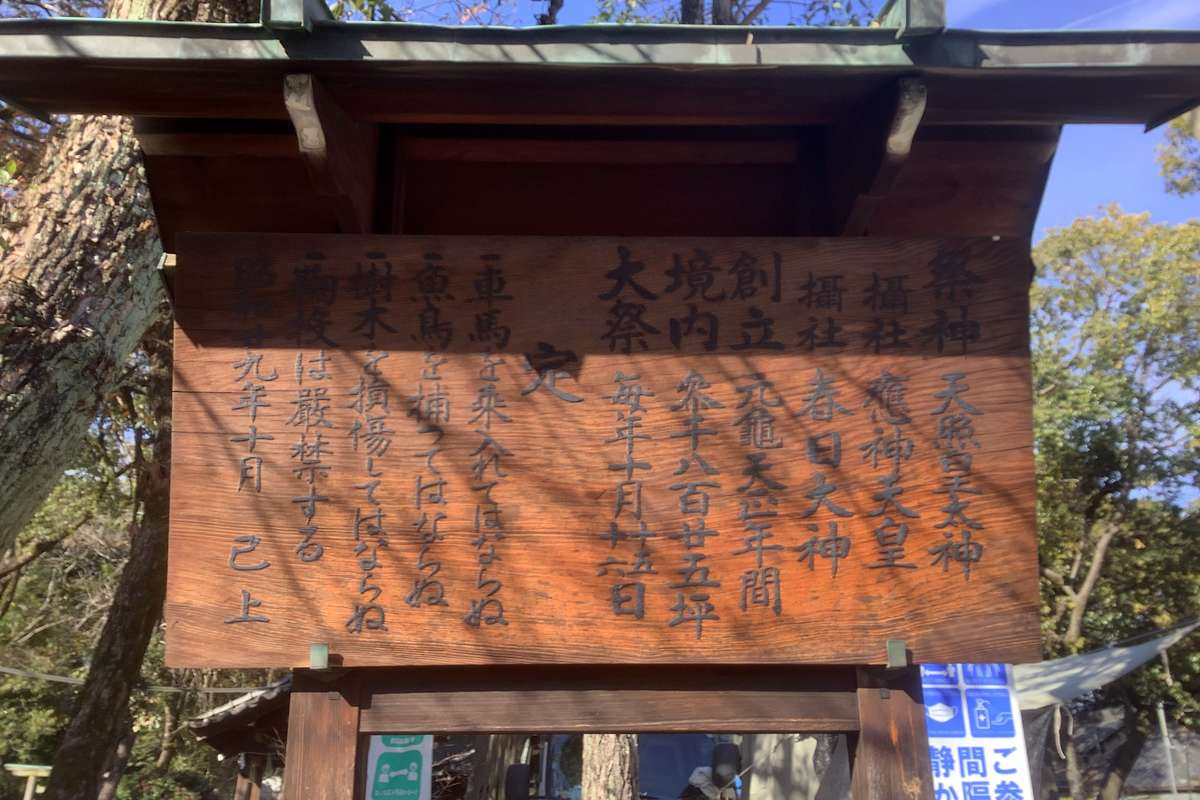 祭神 天照皇太神
攝社 應神天皇
攝社 春日大神
創立 元龜天正年間
境内 参千八百廿五坪
大祭 毎年十月十五十六日
定
一車馬を乗入れてはならぬ
一魚鳥を捕つてはならぬ
一樹木を損傷してはならぬ
一鞠投は厳禁する
昭和廿九年十月 己上
ご参
間隔
静か